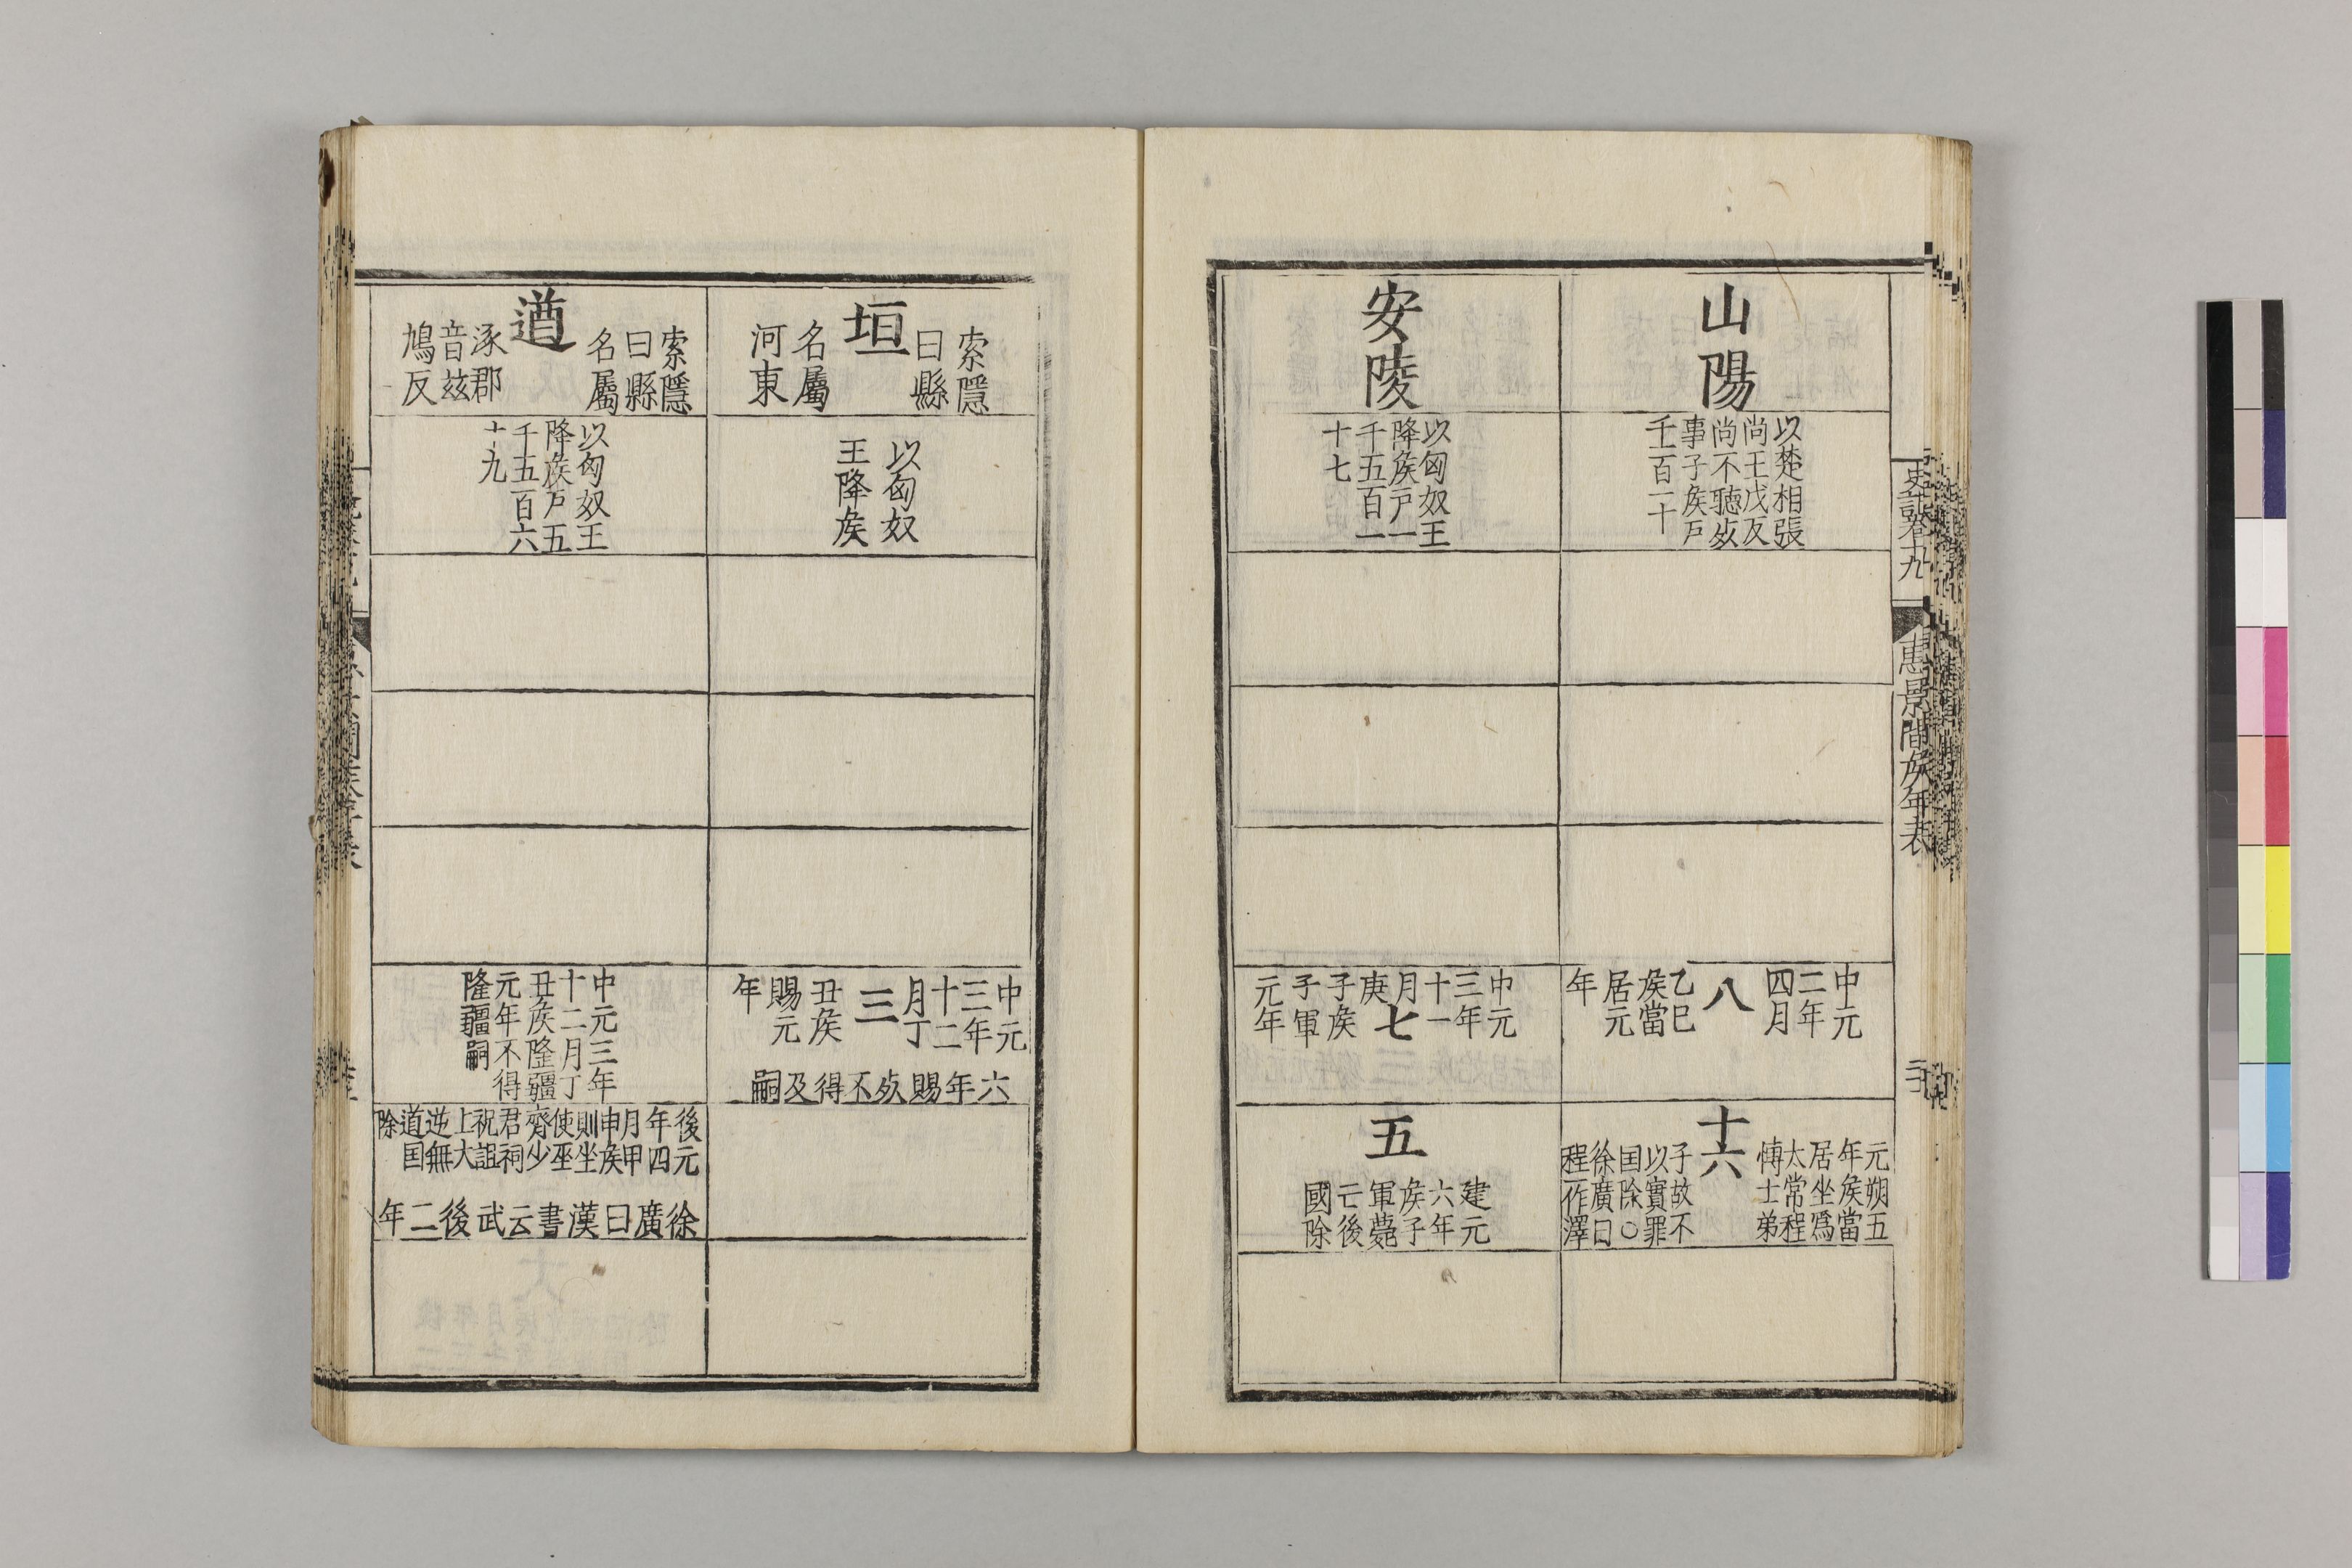 史記卷十九
惠景間侯年表
山陽
以楚相張
尚王戊反
尚不聽𣦸
事子侯戶
千一百一十
中元
二年
四月
八
乙巳
侯當
居元
年
十六
元朔五
年侯當
居坐爲
太常程
博士弟
子故不
以實罪
国除○
徐廣曰
程一作澤
安陵
以匈奴王
降侯戶一
千五百一
十七
中元
三年
十一
月
七
庚
子侯
子軍
元年
五
建元
六年
侯子
軍薨
亡後
國除
索隱
曰縣
垣
名屬
河東
以匈奴
王降侯
中元
三年
十二
月丁
三
丑侯
賜元
年
六年賜𣦸不得及嗣
索隱
曰縣
名屬
遒
涿郡
音兹
鳩反
以匈奴王
降侯戶五
千五百六
十九
中元三年
十二月丁
丑侯隆疆
元年不得
隆疆嗣
後元
年四
月甲
申侯
則坐
使巫
齊少
君祠
祝詛
上大
逆無
道国
除
徐廣曰漢書云武後二年